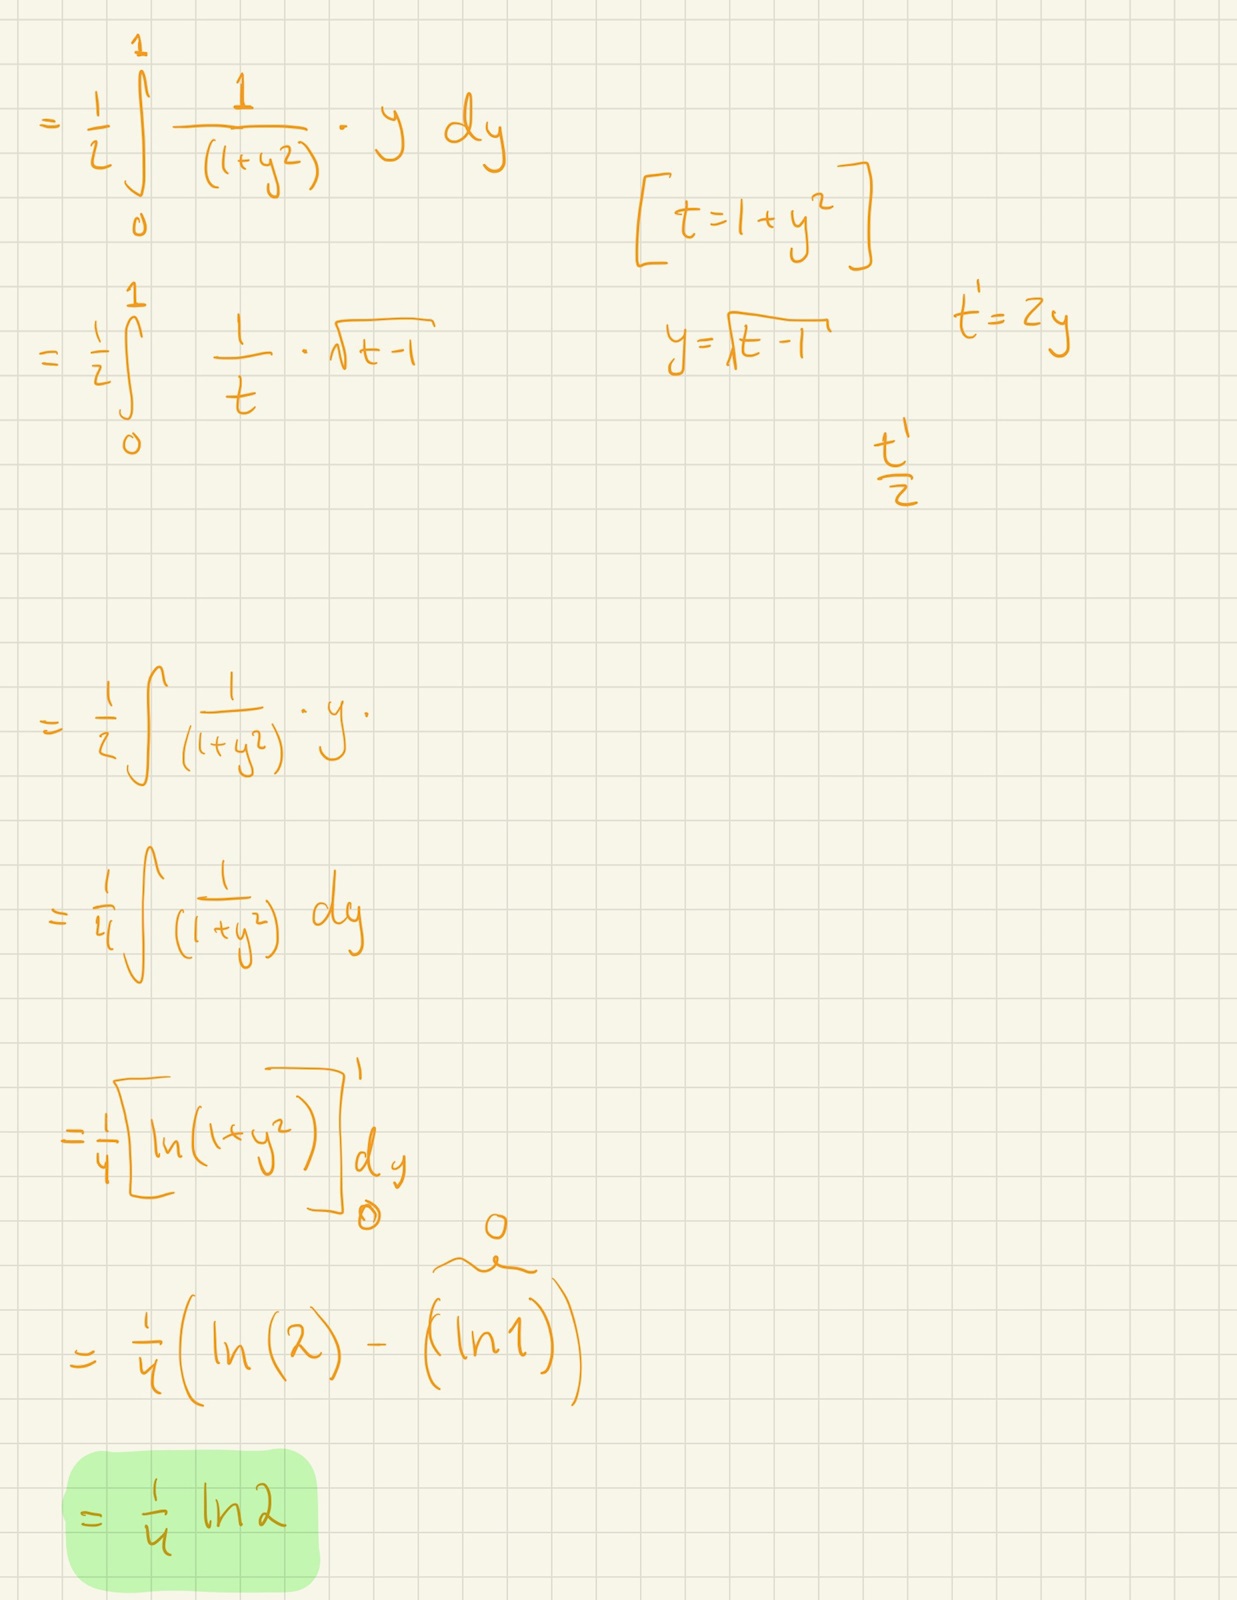 = 1/2 ∫₀¹ 1/(1+y²) · y dy
[t = 1 + y²]
= 1/2 ∫₀¹ 1/t · √(t-1)
y = √(t-1)
t' = 2y
t'/2
= 1/2 ∫ 1/(1+y²) · y ·
= 1/4 ∫ 1/(1+y²) dy
= 1/4 [ln(1+y²)]₀¹ dy
0
= 1/4 (ln(2) - (ln 1))
= 1/4 ln 2